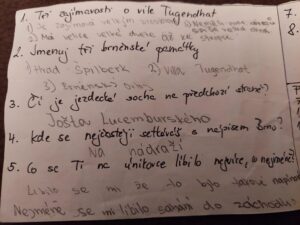 1. Tři zajímavosti o vile Tugendhat
1) Je zajímavá velkým
2) Má velice velké dveře až ke stropu
2. Jmenuj tři brněnské památky
1) Hrad Špilberk 2) Vila Tugendhat
3) Brněnský
3. Čí je jezdecká socha na předchozí straně?
Jošta Lucemburského
4. Kde se nejčastěji setkáváš s nápisem Brno?
Na nádraží
5. Co se Ti na unitovce líbilo nejvíce, a nejméně?
Líbilo se mi že to bylo takové
Nejméně se mi líbilo sahání do záchodu.
7.
8.